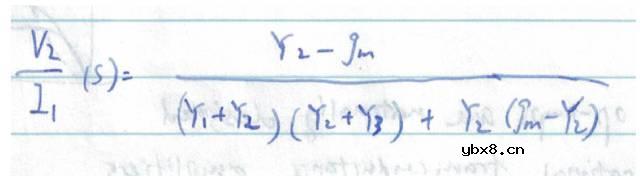 V₂/I₁ (s) = (Y₂ − gₘ) / ((Y₁+Y₂)(Y₂+Y₃) + Y₂(gₘ−Y₂))
ybx8.cn